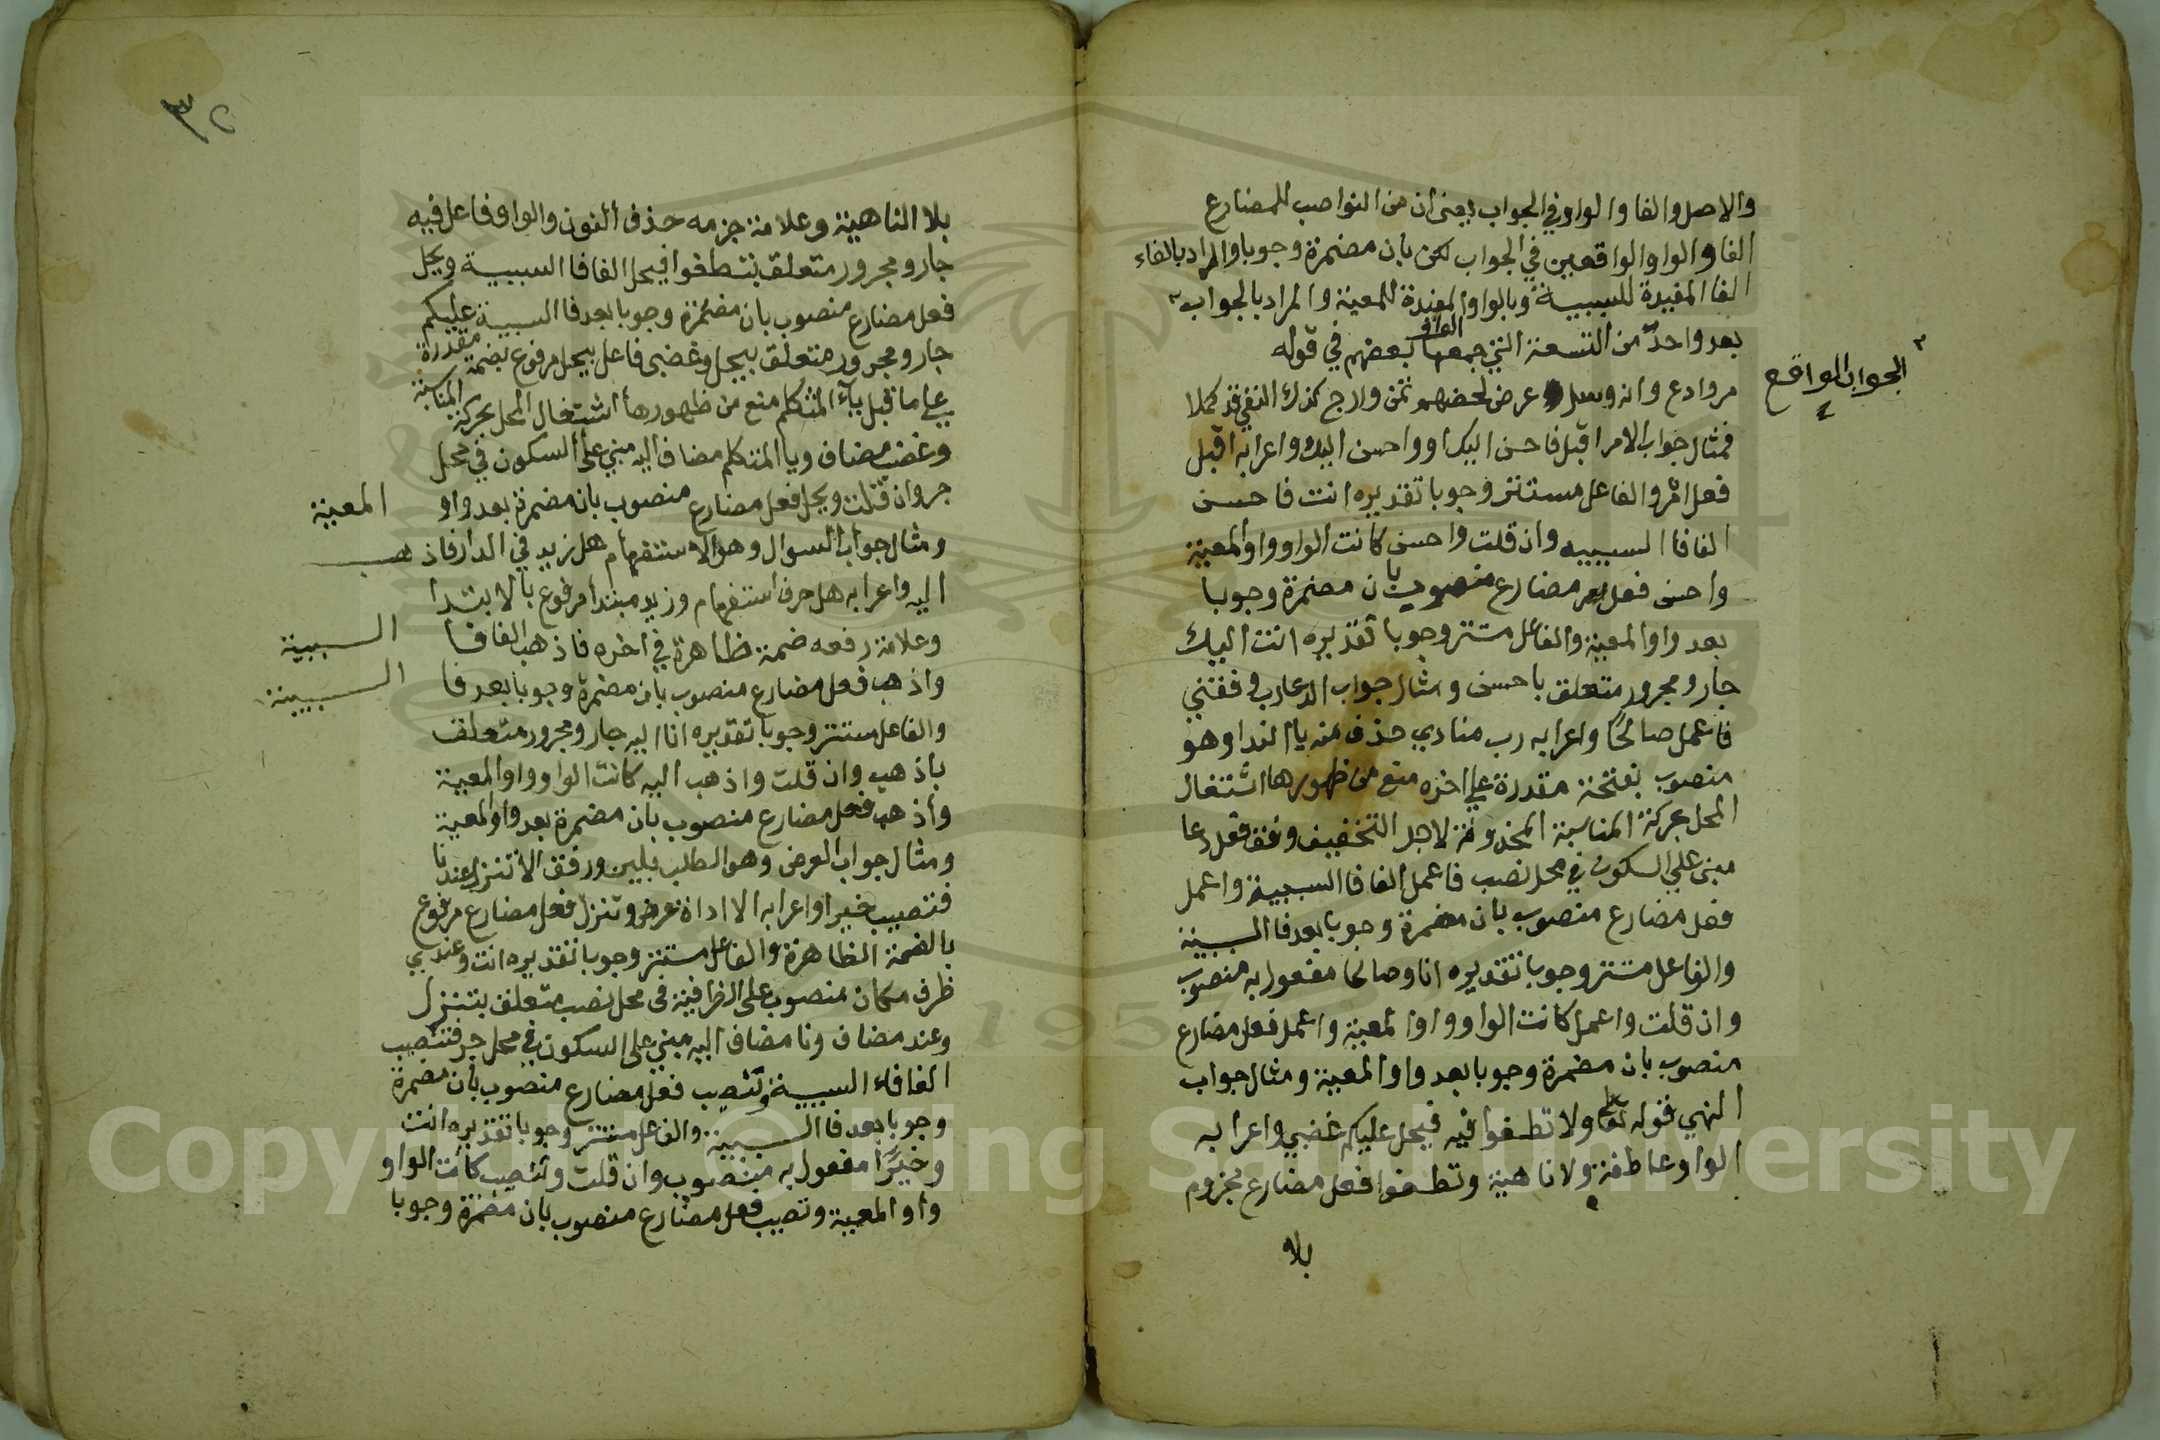 والاصل والفا والواو في الجواب يعني ان من النواصب للمضارع
الفا والواو الواقعين في الجواب لكن بان مضمرة وجوبا والمراد بالفاء
الفا المفيدة للسببية وبالواو المفيدة للمعية والمراد بالجواب
الجواب الواقع
بعد واحد من التسعة التي جمعها بعضهم في قوله
مر وادع وانه وسل عرض لحضهم تمن وارج كذاك النفي قد كملا
فمثال جواب الامر اقبل فاحسن اليك او واحسن اليك واعرابه اقبل
فعل امر والفاعل مستتر وجوبا تقديره انت فاحسن
الفا فا السببيه وان قلت واحسن كانت الواو واو المعية
واحسن فعل مضارع منصوب بان مضمرة وجوبا
بعد واو المعية والفاعل مستتر وجوبا تقديره انت اليك
جار ومجرور متعلق باحسن ومثال جواب الدعا رب وفقني
فاعمل صالحا واعرابه رب منادي حذف منه يا الندا وهو
منصوب بفتحة مقدرة علي اخره منع من ظهورها اشتغال
المحل بحركة المناسبة المحذوفة لاجل التخفيف وفق فعل دعا
مبني علي السكون في محل نصب فاعمل الفا فا السببية واعمل
فعل مضارع منصوب بان مضمرة وجوبا بعد فا السببية
والفاعل مستتر وجوبا تقديره انا وصالحا مفعول به منصوب
وان قلت واعمل كانت الواو واو المعية واعمل فعل مضارع
منصوب بان مضمرة وجوبا بعد واو المعية ومثال جواب
النهي قوله تعالى ولا تطغوا فيه فيحل عليكم غضبي واعرابه
الواو عاطفة ولا ناهية وتطغوا فعل مضارع مجزوم
بلا
٣٢
بلا الناهية وعلامة جزمه حذف النون والواو فاعل فيه
جار ومجرور متعلق بتطغوا فيحل الفا فا السببية ويحل
فعل مضارع منصوب بان مضمرة وجوبا بعد فا السببية عليكم
جار ومجرور متعلق بيحل وغضبي فاعل بيحل مرفوع بضمة مقدرة
علي ما قبل ياء المتكلم منع من ظهورها اشتغال المحل بحركة المناسبة
وغضب مضاف ويا المتكلم مضاف اليه مبني على السكون في محل
جر وان قلت ويحل فعل مضارع منصوب بان مضمرة بعد واو المعية
ومثال جواب السوال وهو الاستفهام هل زيد في الدار فاذهب
اليه واعرابه هل حرف استفهام وزيد مبتدا مرفوع بالابتدا
وعلامة رفعه ضمة ظاهرة في اخره فاذهب الفا فا السببية
واذهب فعل مضارع منصوب بان مضمرة وجوبا بعد فا السببية
والفاعل مستتر وجوبا تقديره انا اليه جار ومجرور متعلق
باذهب وان قلت واذهب اليه كانت الواو واو المعية
واذهب فعل مضارع منصوب بان مضمرة بعد واو المعية
ومثال جواب العرض وهو الطلب بلين ورفق الا تنزل عندنا
فتصيب خيرا واعرابه الا اداة عرض وتنزل فعل مضارع مرفوع
بالضمة الظاهرة والفاعل مستتر وجوبا تقديره انت وعندي
ظرف مكان منصوب على الظرفية في محل نصب متعلق بتنزل
وعند مضاف ونا مضاف اليه مبني على السكون في محل جر فتصيب
الفا فاء السببية وتصيب فعل مضارع منصوب بان مضمرة
وجوبا بعد فا السببية والفاعل مستتر وجوبا تقديره انت
وخيرا مفعول به منصوب وان قلت وتصيب كانت الواو
واو المعية وتصيب فعل مضارع منصوب بان مضمرة وجوبا
Copyright © King Saud University
195